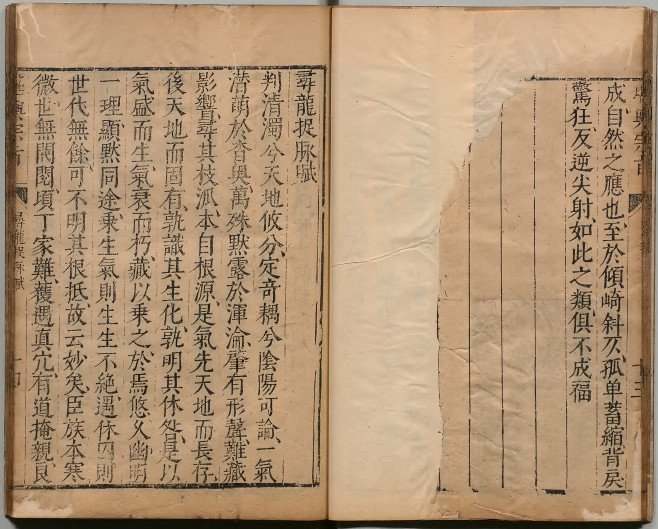 成自然之應也至於傾崎斜仄孤单蓄縮背戾
驚狂反逆尖射如此之類俱不成福
十三
尋龍捉脉賦
判清濁兮天地攸分定奇耦兮陰陽可論一氣
潛萌於杳㝠萬殊默露於渾淪肇有形聲難藏
影響尋其枝派本自根源是氣先天地而長存
後天地而固有孰識其生化孰明其休咎是以
氣盛而生氣衰而朽藏以乘之於焉悠久幽明
一理顯默同途乗生氣則生生不絶遇休囚則
世代無餘可不明其根柢故云妙矣臣族本寒
微世無閥閱頃丁家難蒦遇真宄有道掩親良
尋龍捉脉賦